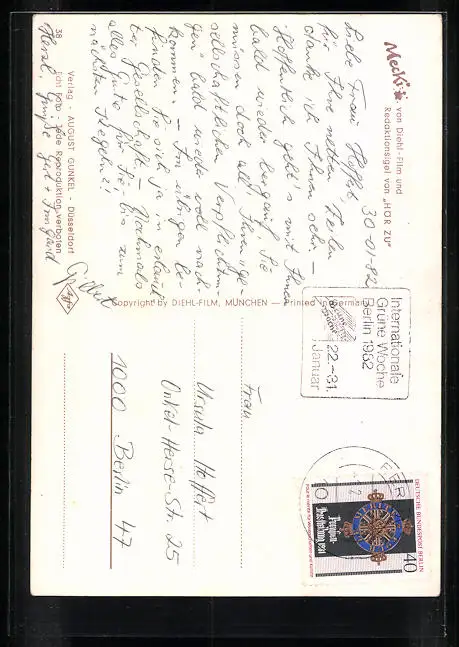 Mecki von Diehl-Film und
Redaktionsigel von „HÖR ZU"
30-01-82
Liebe Frau Hoffert,
für Ihre netten Zeilen
danke ich Ihnen sehr –
Hoffentlich geht's mit Ihnen
bald wieder bergauf, Sie
müssen doch all' Ihren „ge-
sellschaftlichen Verpflichtun-
gen" bald wieder voll nach-
kommen. – Im übrigen be-
finden Sie sich ja in
bester Gesellschaft – Nochmals
alles Gute für Sie, bis zum
nächsten Kegeln!!
Herzl. Grüße Ihre Irmgard
Gilbert
38 Verlag - AUGUST GUNKEL - Düsseldorf
Echt Foto - Jede Reproduktion verboten
Agfa
Copyright by DIEHL-FILM, MÜNCHEN — Printed in Germany
Internationale
Grüne Woche
Berlin 1982
22.-31.
Januar
DEUTSCHE BUNDESPOST BERLIN
40
Preußen-
Ausstellung 1981
Frau
Ursula Hoffert
Onkel-Herse-Str. 25
1000 Berlin 47